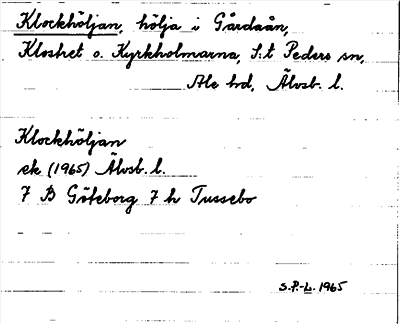 Klockhöljan, hölja i Gårdaån,
Klostret o. Kyrkholmarna, S:t Peders sn,
Ale hd, Älvsb. l.
Klockhöljan
ek (1965) Älvsb. l.
7 B Göteborg 7 h Tussebo
S.P.-L. 1965